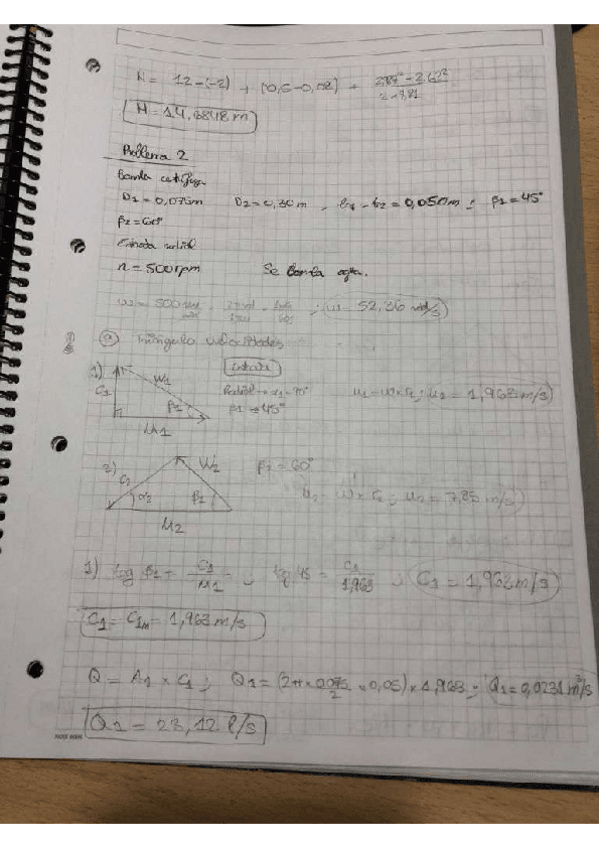 H = 12-(-2) + (0,5-0,02) + /2×9,81
H = 14,6848 m
Problema 2
Bomba centrífuga
D1 = 0,075m D2 = 0,30m , b1 = b2 = 0,050m ; β1 = 45°
β2 = 60°
Entrada radial
n = 500 rpm Se bomba agua.
ω = 500 ; ω = 52,36 rad/s
a) Triángulo velocidades
1) C1 W1 β1 U1
Entrada
Radial → α1 = 90°
β1 = 45°
u1 = ω × r1 ; u1 = 1,963 m/s
2) C2 W2 α2 β2 U2
β2 = 60°
u2 = ω × r2 ; u2 = 7,85 m/s
1) tg β1 = C1/U1 ; tg 45 = C1/1,963 ; C1 = 1,963 m/s
C1 = C1m = 1,963 m/s
Q = A1 × C1 ; Q1 = (2π × 0,075/2 × 0,05) × 1,963 ; Q1 = 0,0231 m³/s
Q1 = 23,12 l/s